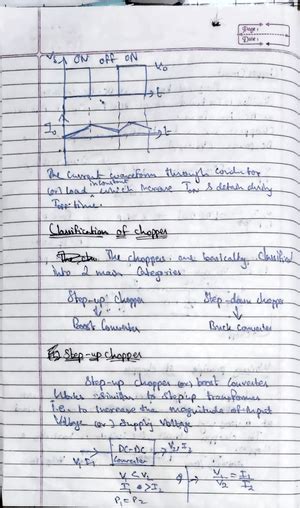 Page:
Date:
Vs ON off ON
Vo
t
Io
t
The current waveform through conductor
inconstant
(or) load which increase Ton & detain during
Toff time.
Classification of chopper
The choppers are basically classified
into 2 main categories
Step-up chopper Step-down chopper
Boost Converter Buck Converter
Step-up chopper
Step-up chopper (or) boost Converter
works similar to step up transformer
i.e. to increase the magnitude of input
Voltage (or) supply voltage
V1 I1 DC-DC Converter V2, I2
V1 ≤ V2
I1 > I2
V1/V2 = I1/I2
P1 = P2